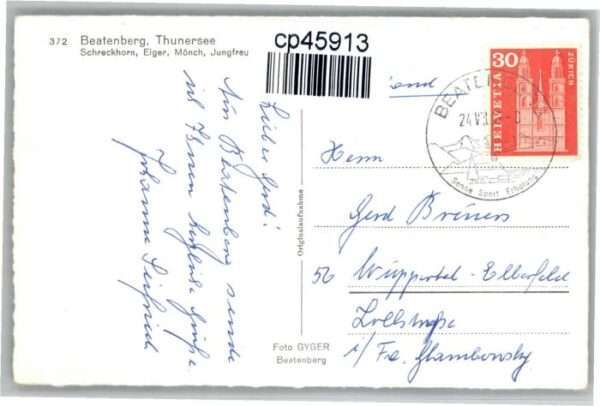 372 Beatenberg, Thunersee
Schreckhorn, Eiger, Mönch, Jungfrau
cp45913
Lieber Gerd!
Von Beatenberg sende
ich Ihnen herzliche Grüße
Johanna
Originalaufnahme
Foto GYGER
Beatenberg
30
HELVETIA
ZÜRICH
BEATENBERG
24.VII
Sonne Sport Erholung
Herrn
Gerd
56 Wuppertal-Elberfeld
i/Fa.